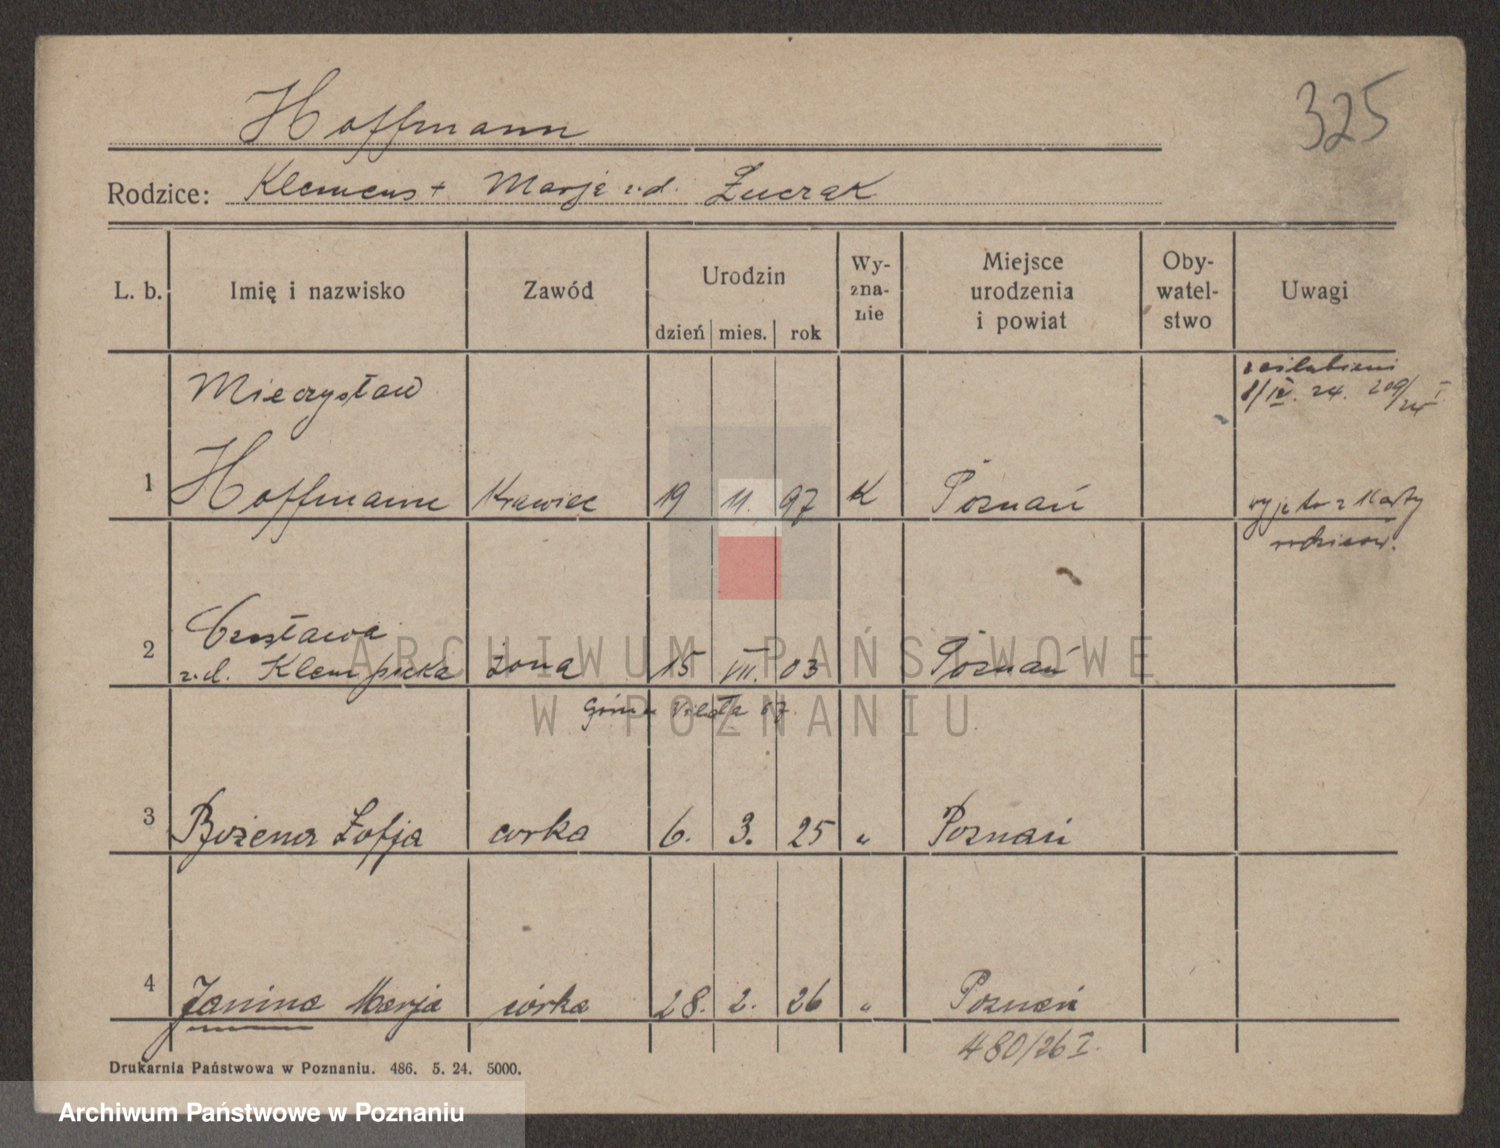 Hoffmann
325
Rodzice: Klemens + Marja z.d. Żuczak
L. b. Imię i nazwisko Zawód Urodzin Wy-zna-nie Miejsce urodzenia i powiat Oby-watel-stwo Uwagi
dzień mies. rok
Mieczysław zaślubieni
8/IV. 24. 209/24 I
1 Hoffmann Krawiec 19 11. 97 K Poznań wyjęto z Karty
rodziców.
Czesława
2 z.d. Klempicka żona 15 VII. 03 Poznań
Górna Wilda 67
3 Bożena Zofja corka 6. 3. 25 " Poznań
4 Janina Marja córka 28. 2. 26 " Poznań
480/26 I.
Drukarnia Państwowa w Poznaniu. 486. 5. 24. 5000.
ARCHIWUM PAŃSTWOWE
W POZNANIU
Archiwum Państwowe w Poznaniu